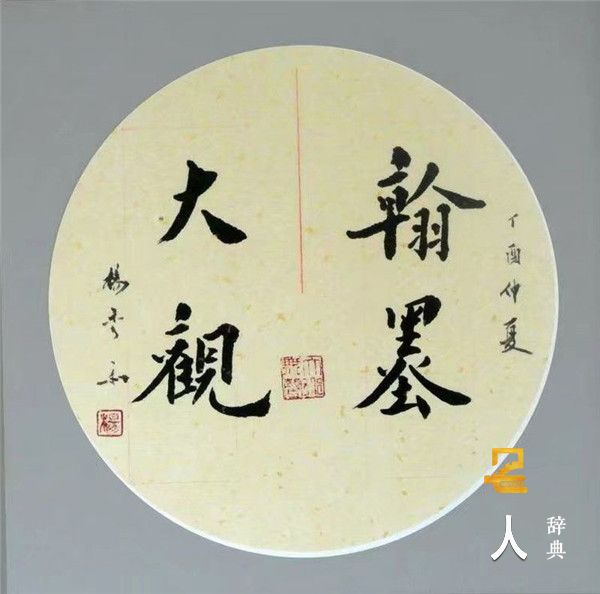 丁酉仲夏
翰墨
大觀
楊
楊
名人
辞典